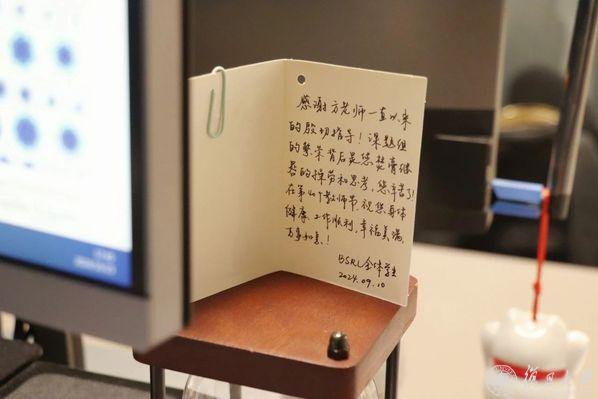 感谢方老师一直以来
的殷切指导！课题组
的繁荣背后是您焚膏继
晷的操劳和思考，您辛苦了！
在第40个教师节，祝您身体
健康、工作顺利、幸福美满、
万事如意！
BSRL全体学生
2024.09.10